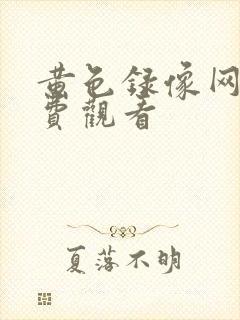 黄色録像网
費觀看
夏落不明